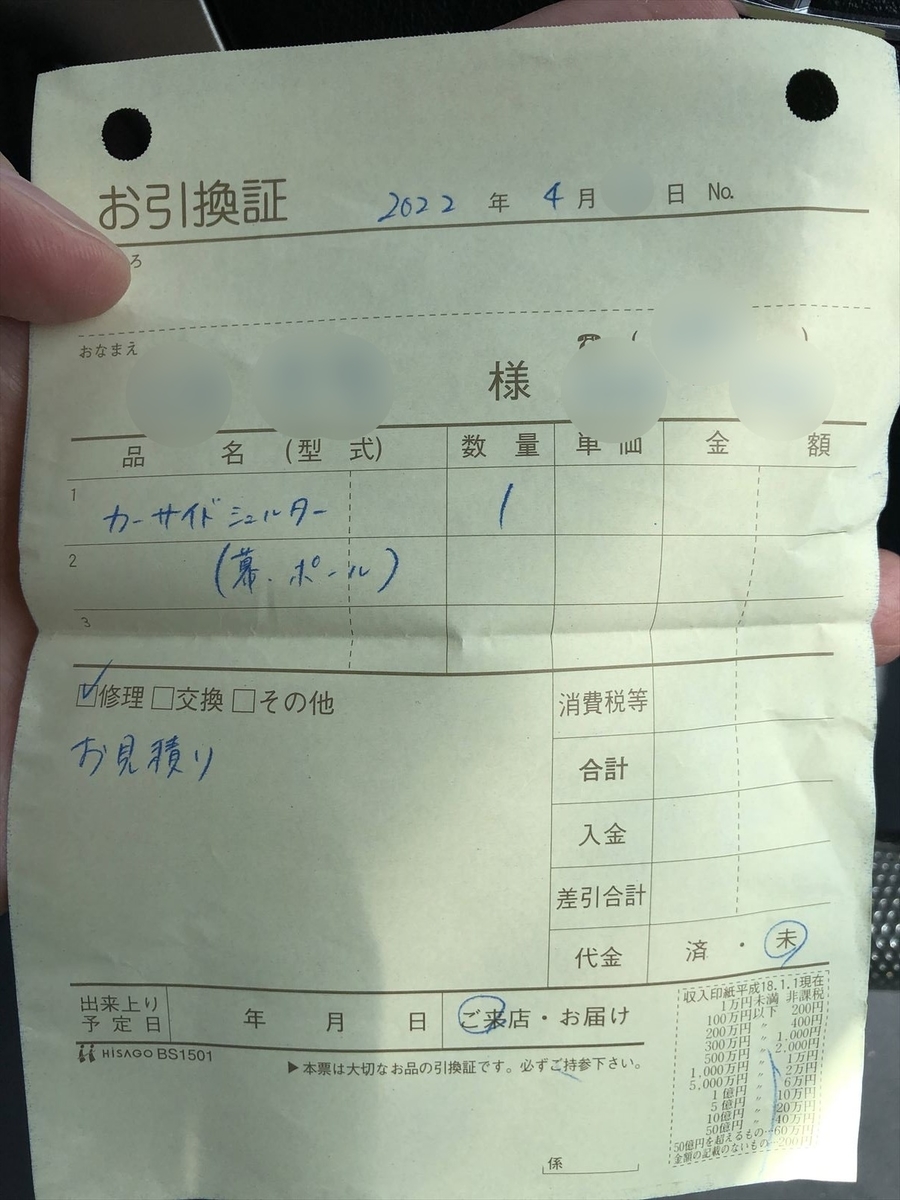 お引換証 2022 年 4 月 日 No.
ろ
おなまえ 様 ☎ ( )
品名(型式) 数量 単価 金額
1 カーサイドシェルター 1
2 (幕、ポール)
3
☑修理 □交換 □その他
お見積り
消費税等
合計
入金
差引合計
代金 済・未
出来上り予定日 年 月 日 ご来店・お届け
HISAGO BS1501
▶本票は大切なお品の引換証です。必ずご持参下さい。
収入印紙平成18.1.1現在
1万円未満 非課税
100万円以下 200円
200万円 〃 400円
300万円 〃 1,000円
500万円 〃 2,000円
1,000万円 〃 1万円
5,000万円 〃 2万円
1億円 〃 6万円
5億円 〃 10万円
10億円 〃 20万円
50億円 〃 40万円
50億円を超えるもの…60万円
金額の記載のないもの…200円
係